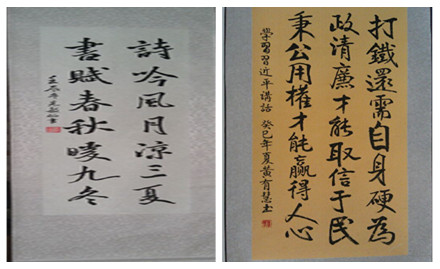 詩吟風月涼三夏
書賦春秋暖九冬
壬辰
打鐵還需自身硬為
政清廉才能取信于民
秉公用權才能贏得人心
學習習近平講話 癸巳年夏黃育慧書